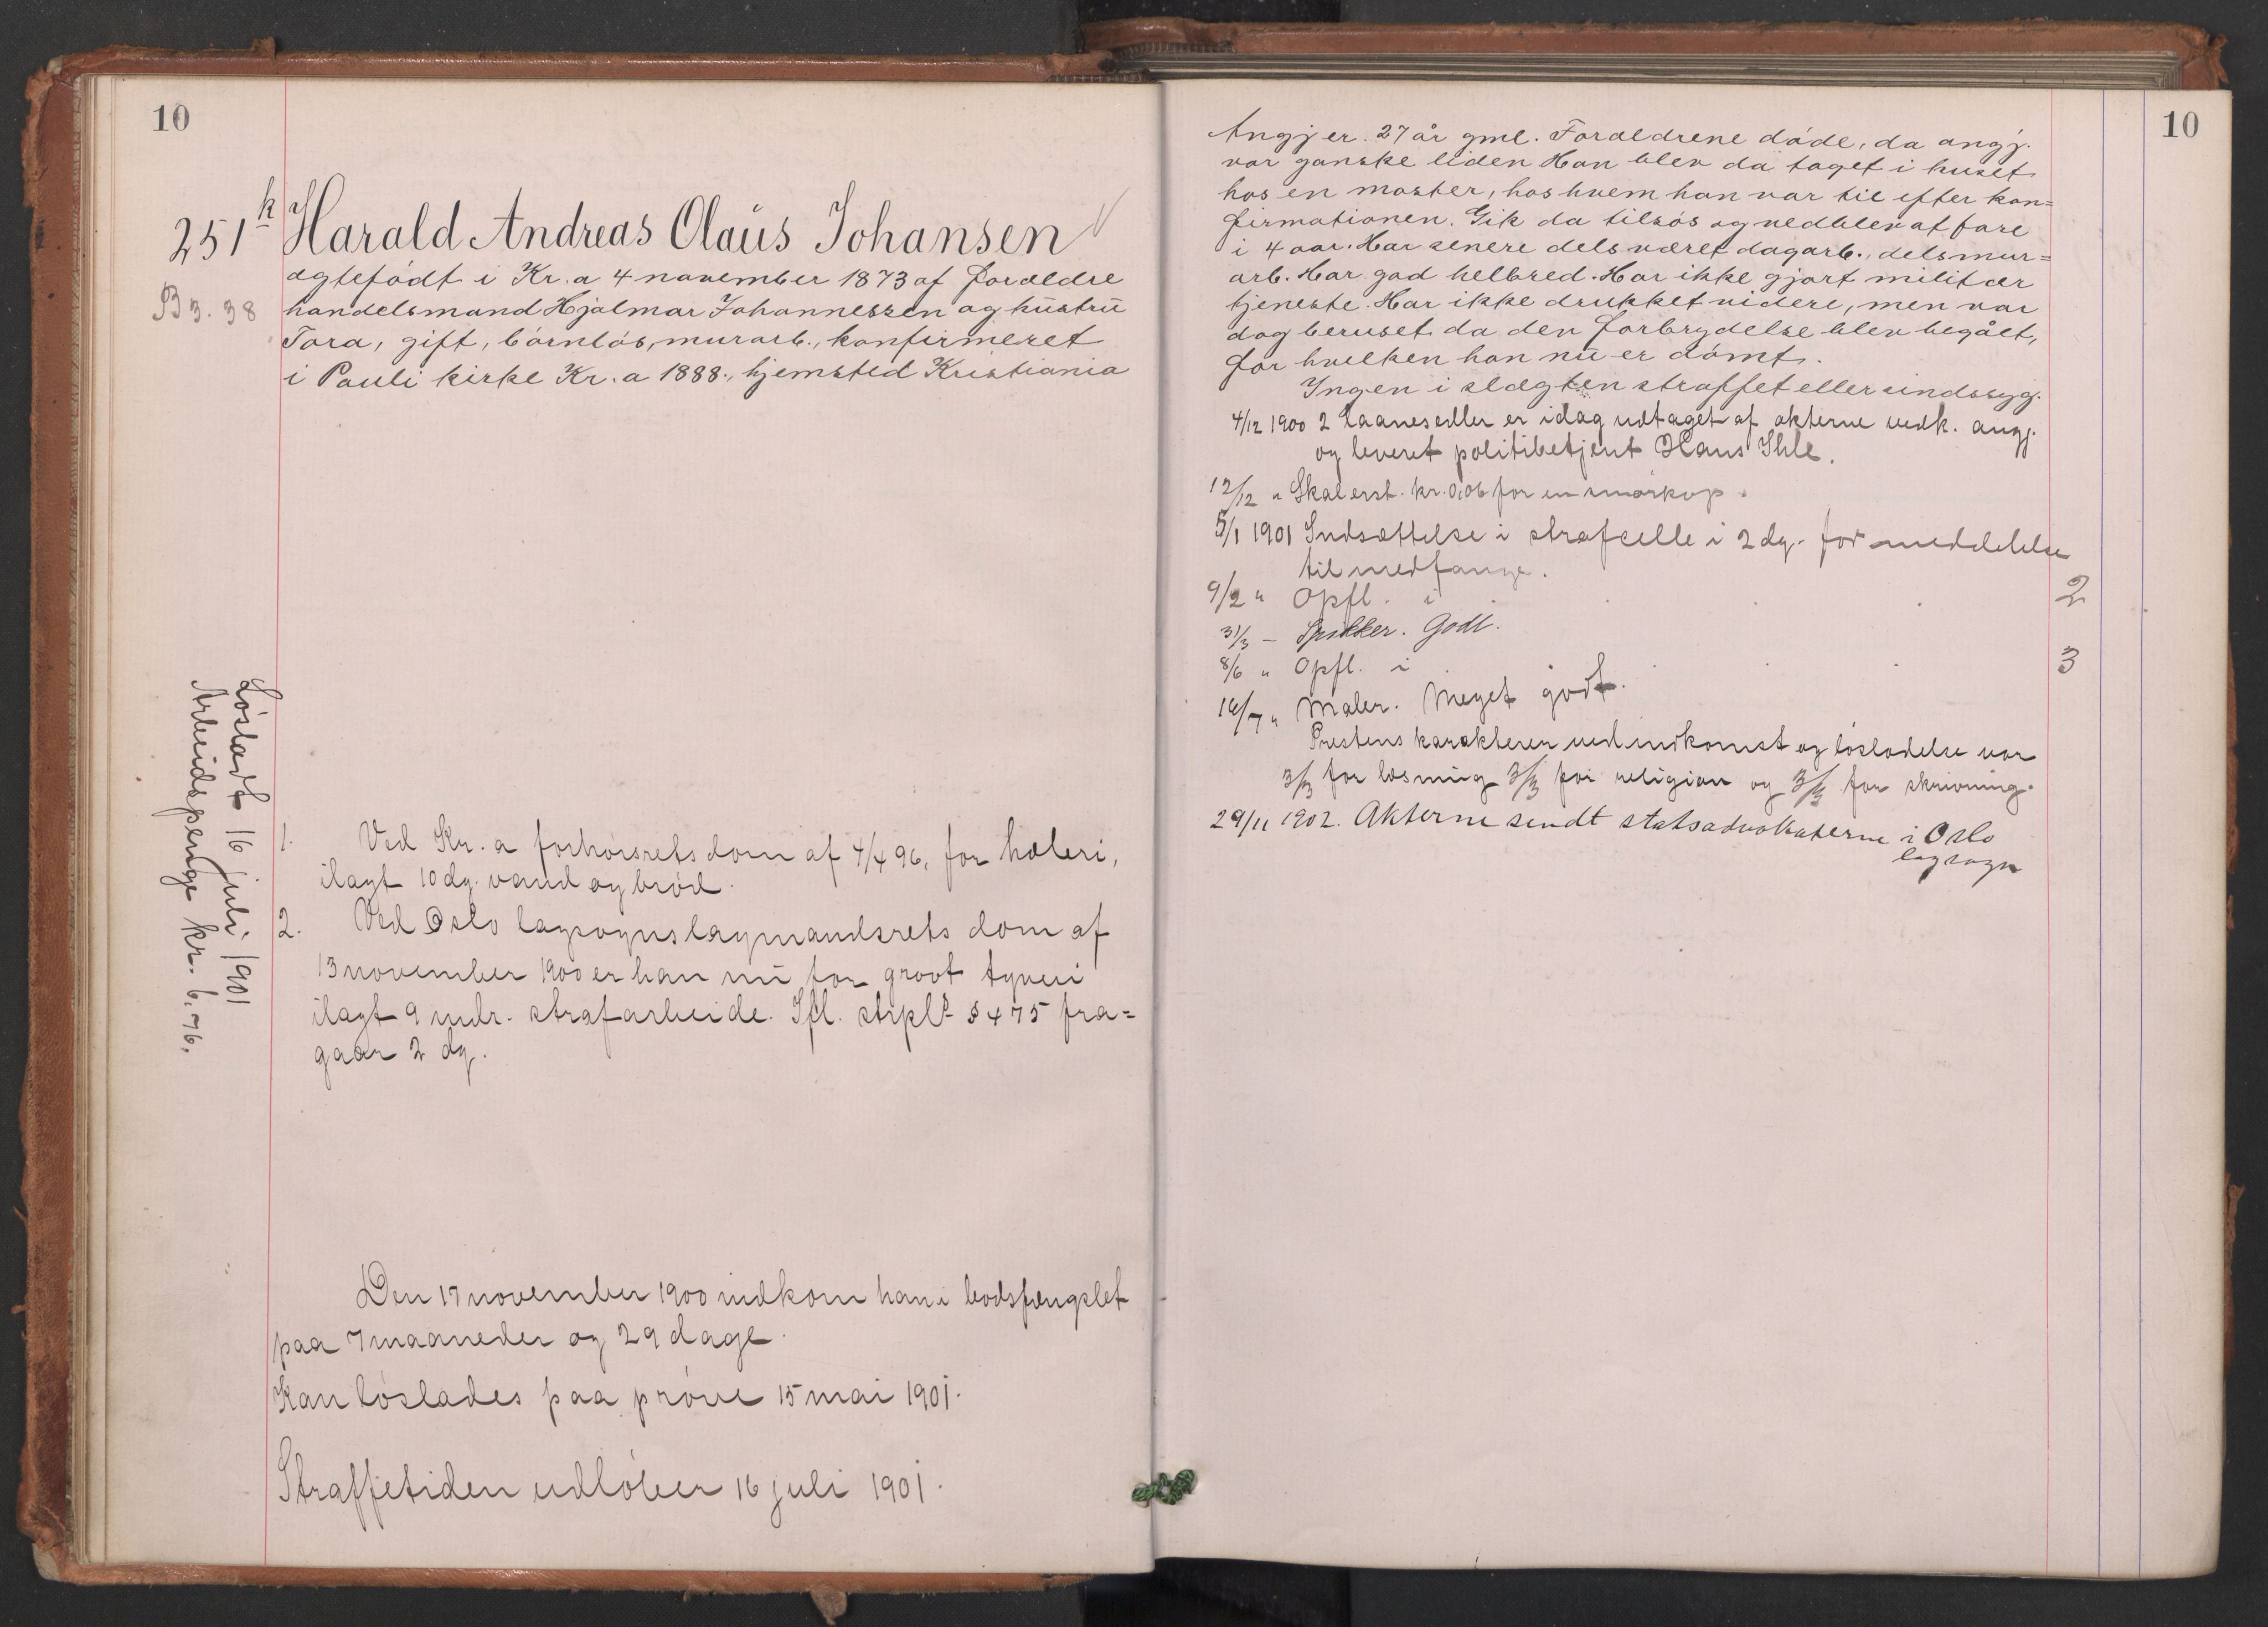 10
251 k Harald Andreas Olaüs Johansen
ægtefödt i Kr.a 4 november 1873 af forældre
B 3. 38 handelsmand Hjalmar Johannessen og hüstrü
Tora, gift, börnlös, murarb., konfirmeret
i Pauli kirke Kr.a 1888., hjemsted Kristiania
Lösladt 16 juli 1901
Arbeidspenge kr. 6.76.
1. Ved Kr.a forhörsrets dom af 4/4 96, for hæleri,
ilagt 10 dg. vand og bröd.
2. Ved Oslo lagsogns lagmandsrets dom af
13 november 1900 er han nü for grovt tyveri
ilagt 9 mdr. strafarbeide. Ifl. strpls § 475 fra=
gaar 2 dg.
Den 17 november 1900 indkom han i bodsfængslet
paa 7 maaneder og 29 dage.
Kan löslades paa pröve 15 mai 1901.
Straffetiden udlöber 16 juli 1901.
10
Angj er 27 år gml. Forældrene döde, da angj.
var ganske liden Han blev da taget i huset
hos en moster, hos hvem han var til efter kon=
firmationen. Gik da tilsös og vedblev at fare
i 4 aar. Har senere dels været dagarb., dels mur=
arb. Har god helbred. Har ikke gjort militær
tjeneste. Har ikke drukket videre, men var
dog beruset da den forbrydelse blev begået,
for hvilken han nü er dömt.
Ingen i slægten straffet eller sindssyg.
4/12 1900 2 laanesedler er idag udtaget af akterne vedk. angj.
og leveret politibetjent Hans Ihle.
12/12 " Skal erst. kr. 0,06 for en smörkop.
5/1 1901 Indsættelse i strafcelle i 2 dg. for meddelelse
til medfange.
9/2 " Opfl. i . . 2
31/3 – Snikker. Godt.
8/6 " Opfl. i . . 3
16/7 " Maler. Meget godt.
Prestens karakterer ved indkomst og löslodelse var
3/3 for læsning 3/3 for religion og 3/3 for skrivning.
29/11 1902. Akterne sendt statsadvokaterne i Oslo
lagsogn